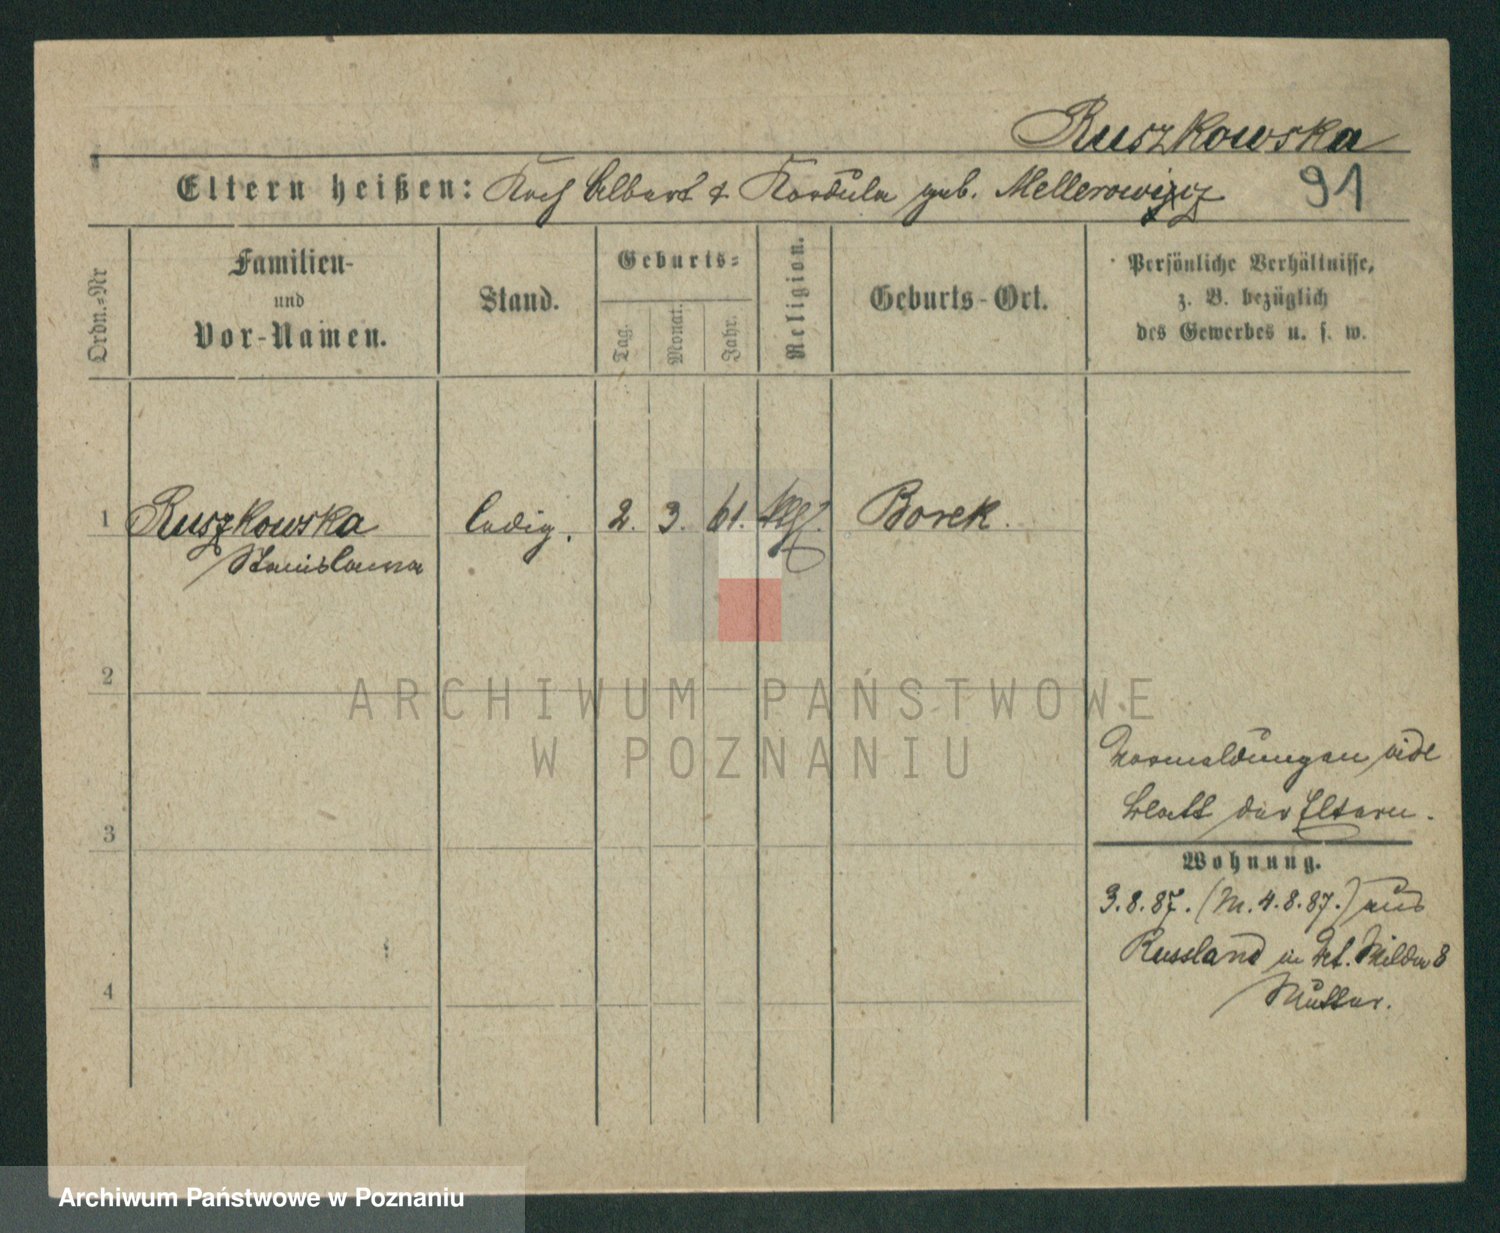 Ruszkowska
Eltern heißen: Koch Albert & Kordula geb. Mellerowicz
91
Ordn.=Nr
Familien-
und
Vor-Namen.
Stand.
Geburts=
Tag.
Monat.
Jahr.
Religion.
Geburts-Ort.
Persönliche Verhältnisse,
z. B. bezüglich
des Gewerbes u. s. w.
1 Ruszkowska ledig. 2. 3. 61. Borek.
Stanislawa
2
ARCHIWUM PAŃSTWOWE
W POZNANIU
Vormeldungen vide
Blatt der Eltern.
3
Wohnung.
3.8.87. (M. 4.8.87.) aus
Russland in 8
Mutter.
4
Archiwum Państwowe w Poznaniu